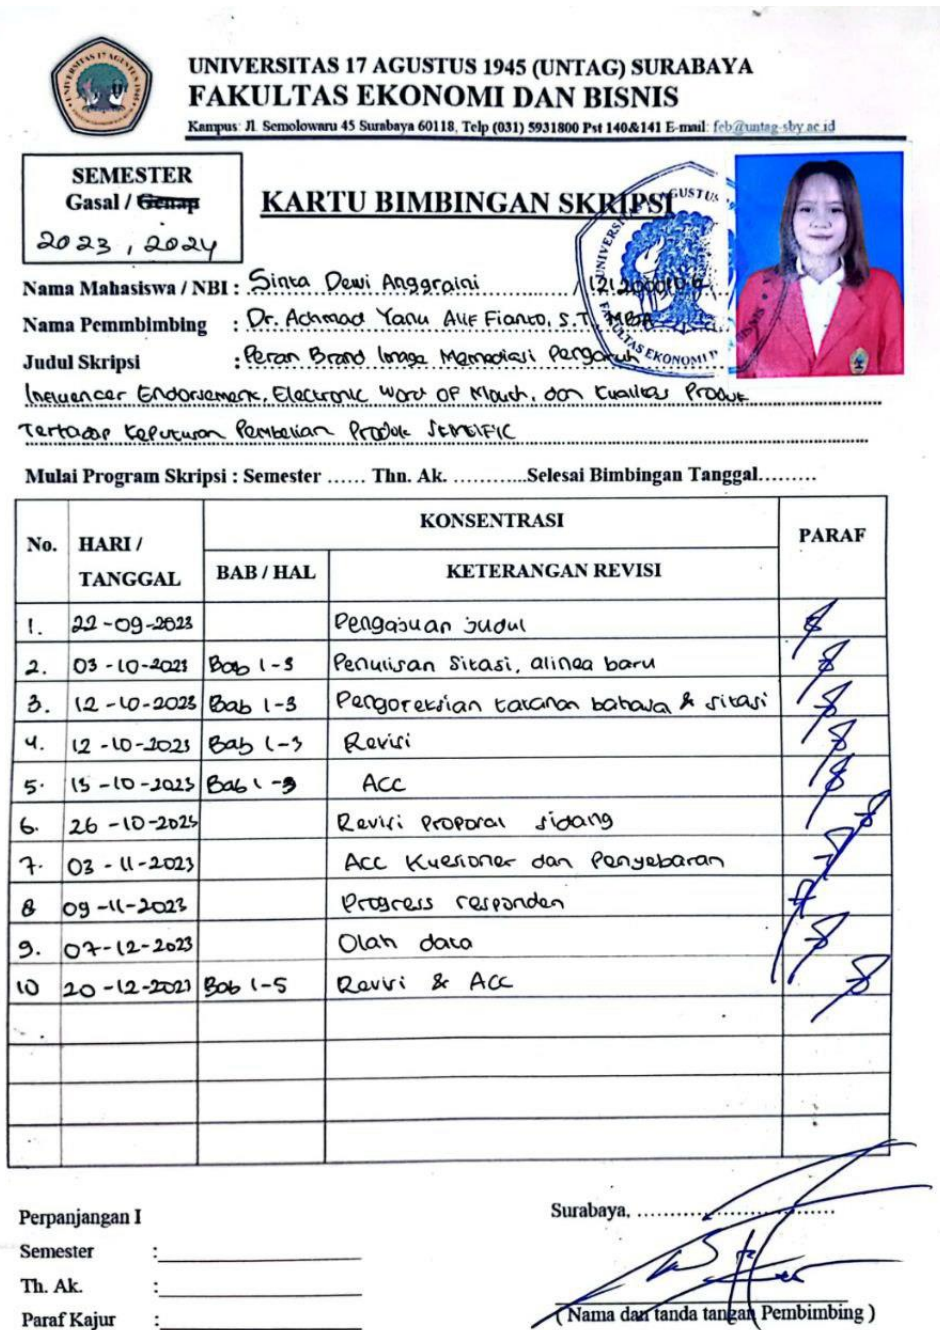 UNIVERSITAS 17 AGUSTUS 1945 (UNTAG) SURABAYA
FAKULTAS EKONOMI DAN BISNIS
Kampus: Jl. Semolowaru 45 Surabaya 60118, Telp (031) 5931800 Pst 140&141 E-mail: feb@untag-sby.ac.id
SEMESTER
Gasal / Genap
2023, 2024
KARTU BIMBINGAN SKRIPSI
Nama Mahasiswa / NBI : Sinta Dewi Anggraini /
Nama Pemmbimbing : Dr. Achmad Yanu Alif Fianto, S.T, MBA
Judul Skripsi : Peran Brand Image Memediasi Pengaruh
Influencer Endorsement, Electronic Word OF Mouth, dan Kualitas Produk
Terhadap Keputusan Pembelian Produk
Mulai Program Skripsi : Semester ...... Thn. Ak. ............Selesai Bimbingan Tanggal.........
No. HARI / TANGGAL KONSENTRASI PARAF
BAB / HAL KETERANGAN REVISI
1. 22-09-2023 Pengajuan judul
2. 03-10-2023 Bab 1-3 Penulisan Sitasi, alinea baru
3. 12-10-2023 Bab 1-3 Pengoreksian tatanan bahasa & sitasi
4. 12-10-2023 Bab 1-3 Revisi
5. 15-10-2023 Bab 1-3 ACC
6. 26-10-2023 Revisi Proposal sidang
7. 03-11-2023 Acc Kuesioner dan Penyebaran
8 09-11-2023 Progress responden
9. 07-12-2023 Olah data
10 20-12-2023 Bab 1-5 Revisi & ACC
Perpanjangan I
Semester :
Th. Ak. :
Paraf Kajur :
Surabaya, ....................................
( Nama dan tanda tangan Pembimbing )